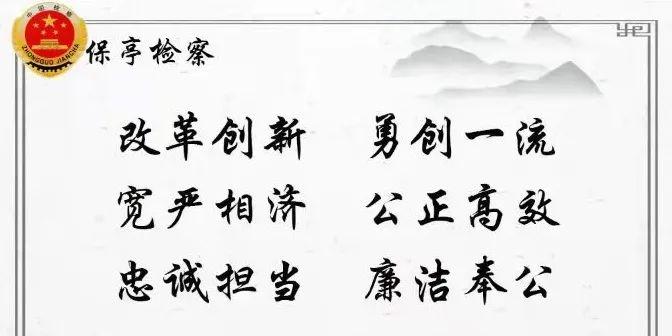 中国检察
ZHONGGUO JIANCHA
保亭检察
改革创新 勇创一流
宽严相济 公正高效
忠诚担当 廉洁奉公